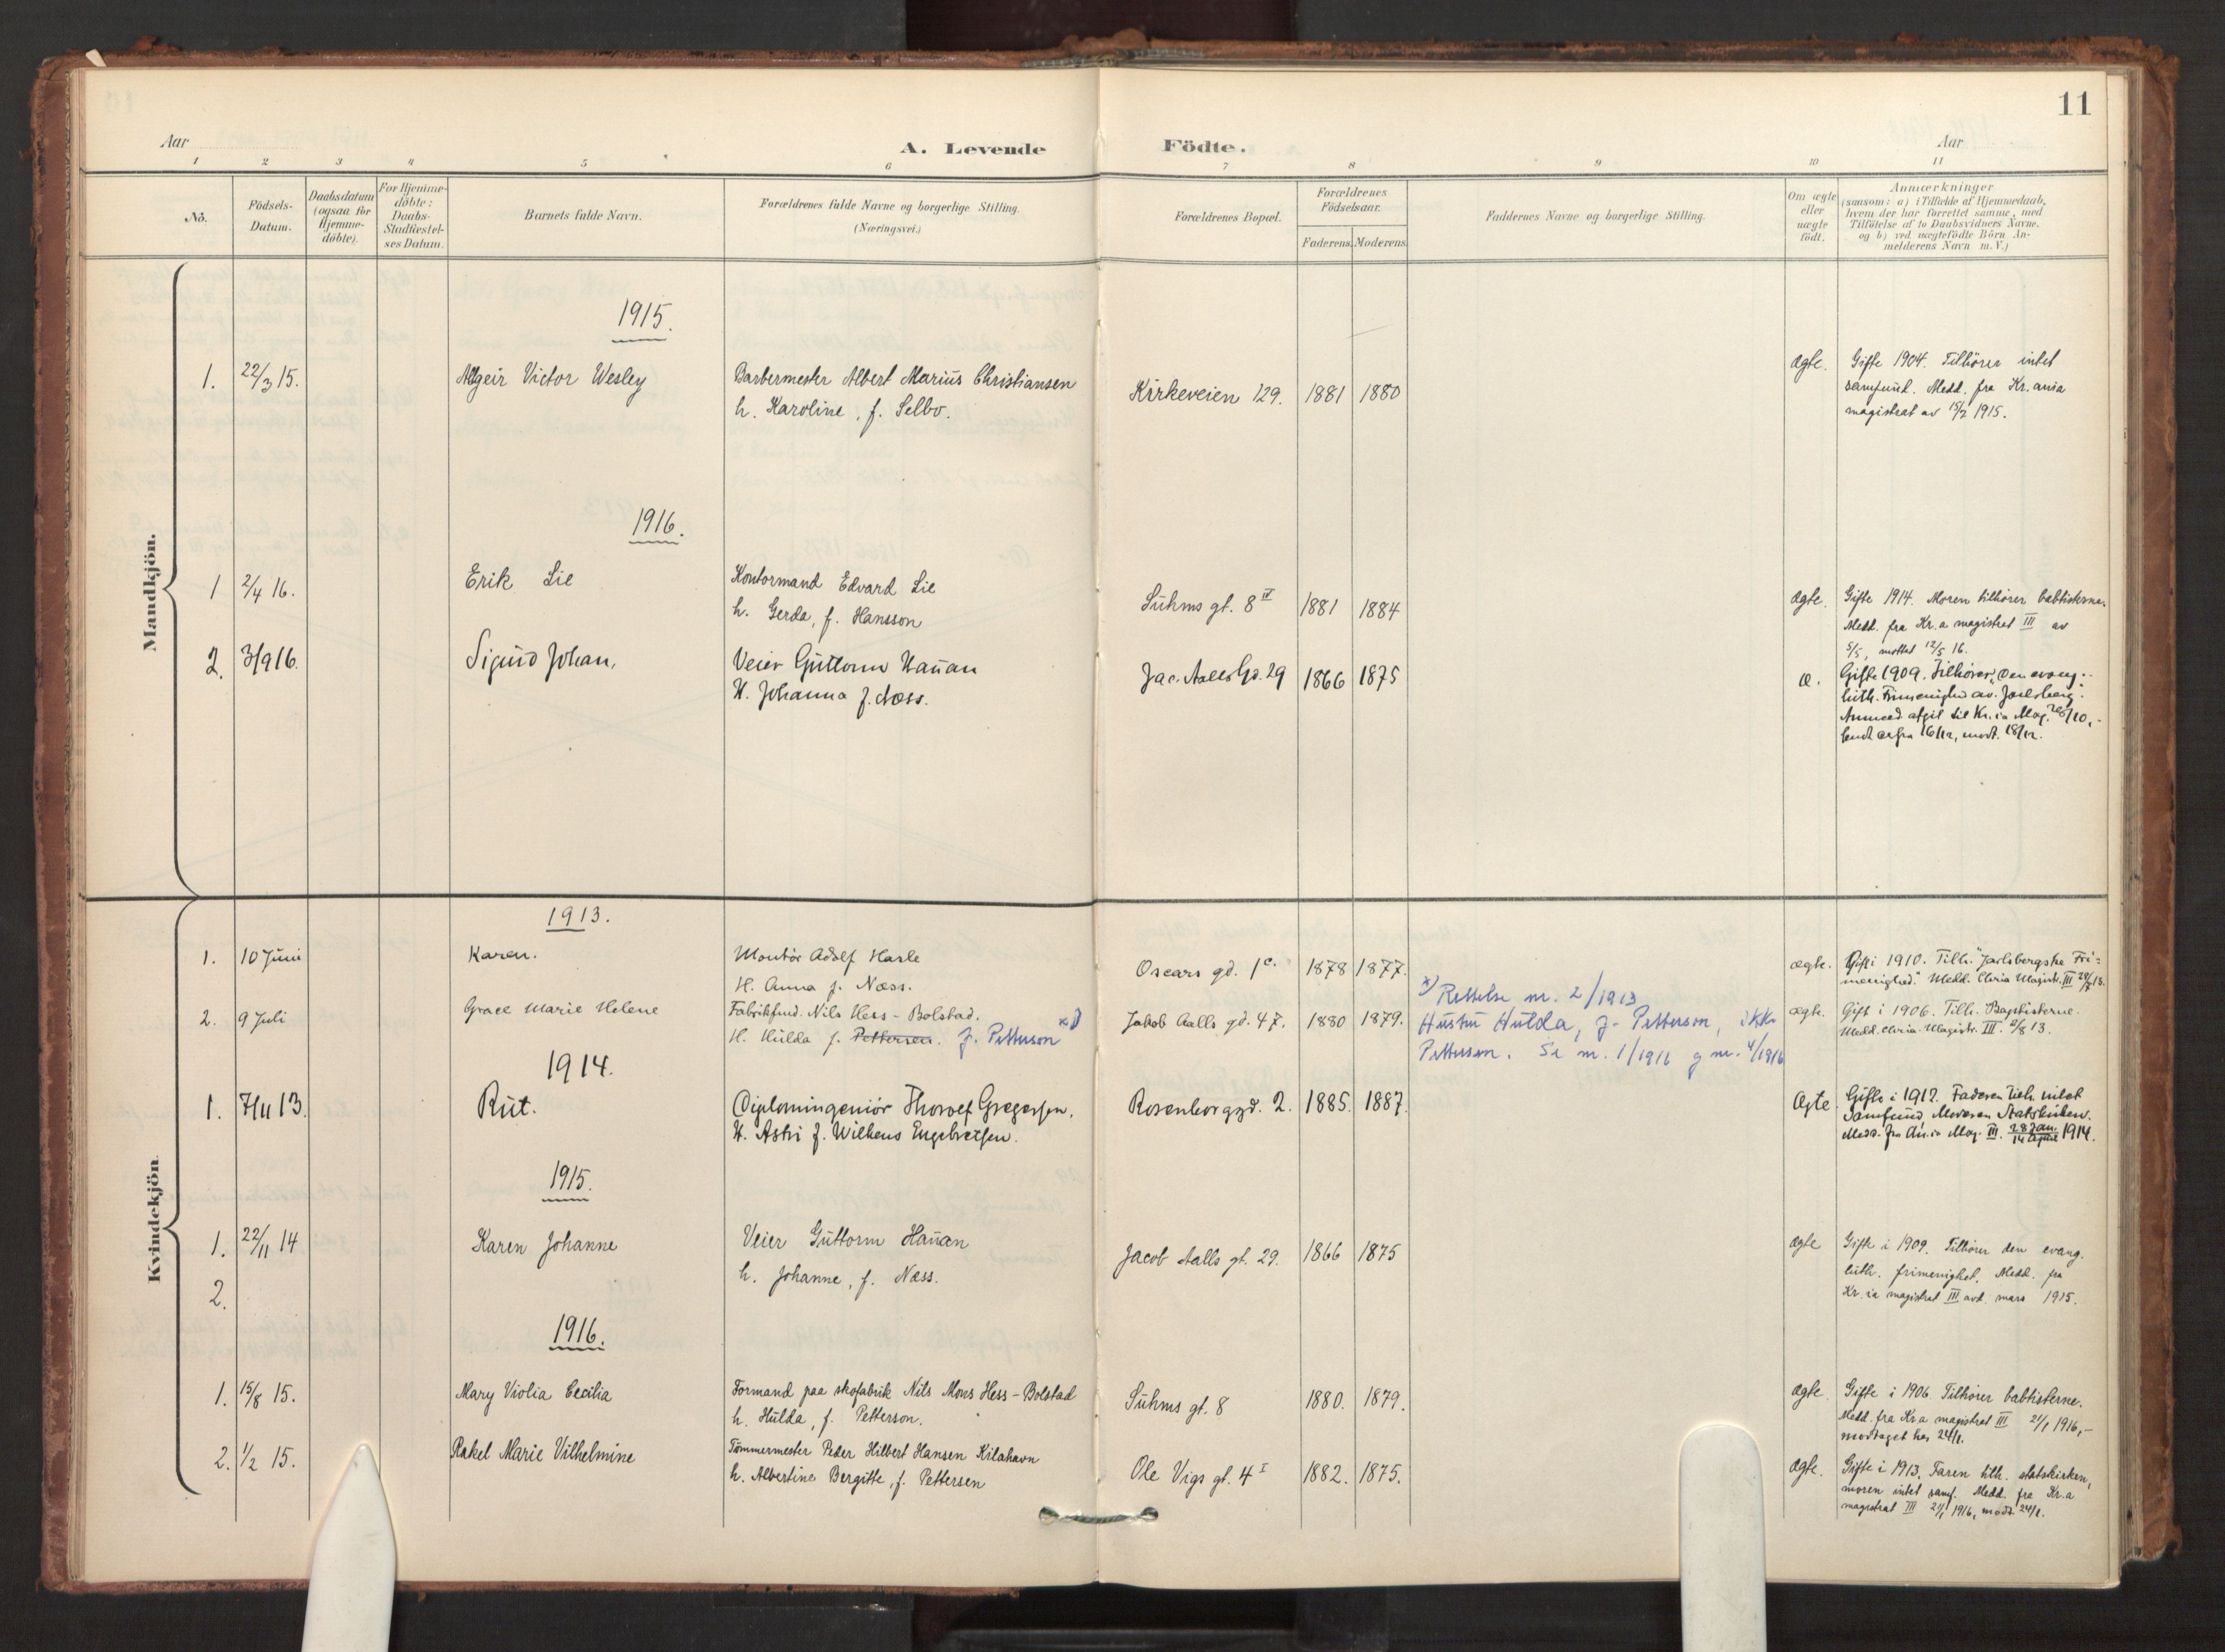 11
Aar
A. Levende Födte.
Aar
1 2 3 4 5 6 7 8 9 10 11
No.
Födsels-
Datum.
Daabsdatum
(ogsaa for
Hjemme-
döbte).
For Hjemme-
döbte:
Daabs-
Stadfæstel-
ses Datum.
Barnets fulde Navn.
Forældrenes fulde Navne og borgerlige Stilling.
(Næringsvei.)
Forældrenes Bopæl.
Forældrenes
Födselsaar.
Faderens. Moderens.
Faddernes Navne og borgerlige Stilling.
Om ægte
eller
uægte
födt.
Anmærkninger
(saasom: a) i Tilfælde af Hjemmedaab,
hvem der har forrettet samme, med
Tilföielse af to Daabsvidners Navne.
og b) ved uægtefödte Börn An-
melderens Navn m. V.)
Mandkjön.
1915.
1. 22/3 15. Algeir Victor Wesley Barbermester Albert Marius Christiansen Kirkeveien 129. 1881 1880 ægte. Gifte 1904. Tilhörer intet
h. Karoline, f. Selbo. samfund. Medd. fra Kr.ania
magistrat av 15/2 1915.
1916.
1 2/4 16. Erik Lie Kontormand Edvard Lie Suhms gt. 8 IV 1881 1884 ægte. Gifte 1914. Moren tilhører babtisterne.
h. Gerda, f. Hansson Medd. fra Kr.a magistrat III av
5/5, mottat 12/5 16.
2. 3/9 16. Sigurd Johan, Veier Guttorm Hauan Jac. Aalls Gd. 29 1866 1875 æ. Gifte 1909. Tilhører "Den evang.-
H. Johanna f. Næss. luth. Frimenighed av. Jarlsberg".
Anmeld afgit til Kr.ia Mag. 28/10,-
sendt derfra 16/12, modt. 18/12.
Kvindekjön.
1913.
1. 10 Juni Karen. Montör Adolf Hasle Oscars gd. 1 c. 1878 1877. ægte. Gift i 1910. Tilh. "Jarlsbergske Fri-
H. Anna f. Næss. menighed." Medd. Chria Magistr. III 28/7 13.
2. 9 Juli Grace Marie Helene Fabrikfmd. Nils Hess-Bolstad. Jakob Aalls gd. 47. 1880 1879. ægte. Gift i 1906. Tilh. Baptisterne.
H. Hulda f. Pettersen. f. Petterson x) Medd. Chria. Magistr. III. 2/8 13.
x) Rettelse nr. 2/1913
Hustru Hulda, f. Petterson, ikke
Pettersen. Se nr. 1/1916 g nr. 4/1916
1914.
1. 7/11 13. Rut. Diplomingeniör Thorolf Gregersen. Rosenborggd. 2. 1885. 1887. Ægte. Gifte i 1912. Faderen tilh. intet
H. Astri f. Wilhens Engebretsen. Samfund, Moderen Statskirken.
Medd. fra Kr.ia Mag. III. 28 Jan./14 April 1914.
1915.
1. 22/11 14 Karen Johanne Veier Guttorm Hauan Jacob Aalls gt. 29. 1866 1875 ægte Gift i 1909. Tilhører den evang.
h. Johanne, f. Næss. luth. frimenighet. Medd. fra
Kr.ia magistrat III avd. mars 1915.
2.
1916.
1. 15/8 15. Mary Violia Cecilia Formand paa skofabrik Nils Mons Hess-Bolstad Suhms gt. 8 1880. 1879. ægte. Gifte i 1906 Tilhører babtisterne.
h. Hulda, f. Petterson. Medd. fra Kr.a magistrat III 21/1 1916,-
modtaget her 24/1.
2. 1/2 15. Rakel Marie Vilhelmine Tömmermester Peder Hilbert Hansen Kilahavn Ole Vigs gt. 4 I 1882. 1875. ægte. Gifte i 1913. Faren tilh. statskirken,
h. Albertine Bergitte, f. Pettersen moren intet samf. Medd. fra Kr.a
magistrat III 21/1 1916, modt. 24/1.